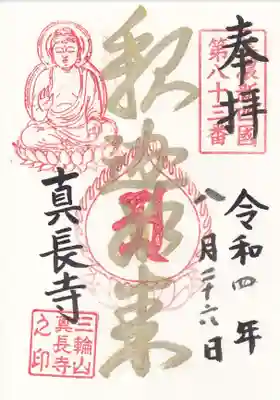 奉拝
第八十三番
釈迦如来
令和四年
八月二十六日
真長寺
三輪山
真長寺
之印